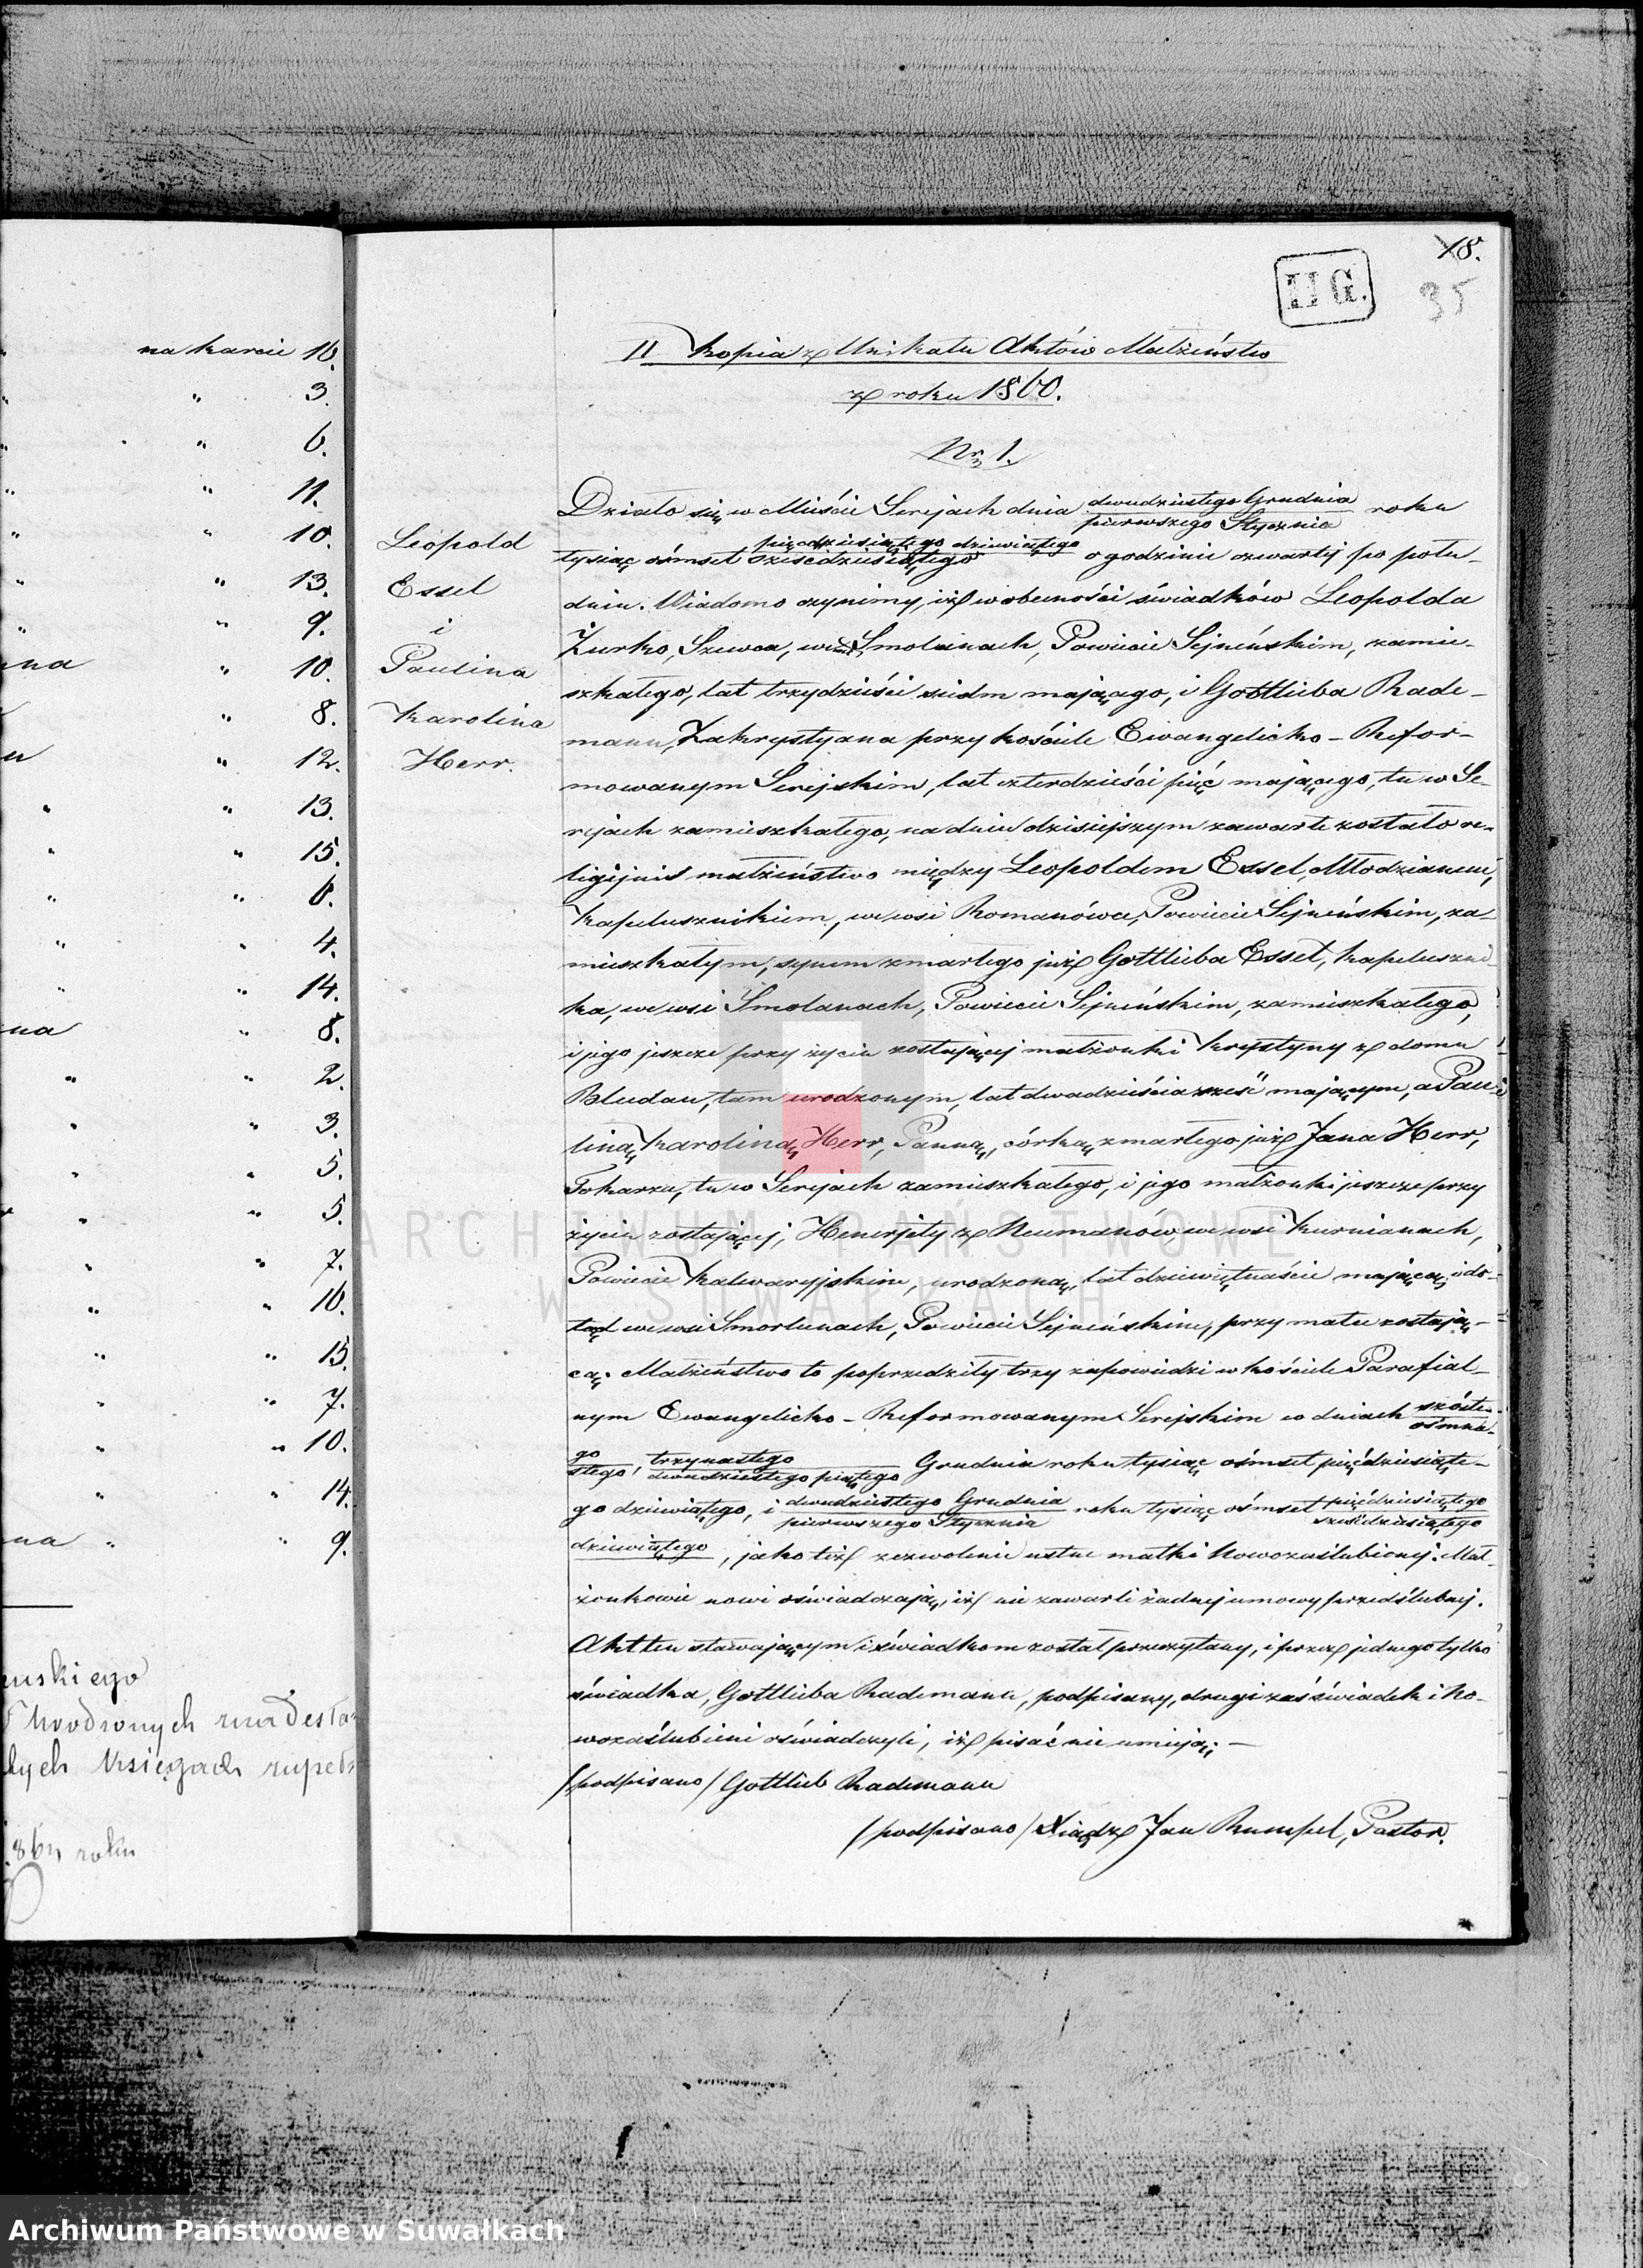 na karcie 16.
" 3.
" 6.
" 11.
" 10.
" 13.
" 9.
na " 10.
" 8.
" 12.
" 13.
" 15.
" 6.
" 4.
" 14.
na " 8.
" 2.
" 3.
" 5.
" 5.
" 7.
" 16.
" 15.
" 7.
" 10.
" 14.
na " 9.
18.
35
II G.
II Kopia z Unikatu Aktów Małżeństw
z roku 1860.
Nr. 1.
Leopold
Essel
i
Paulina
Karolina
Herr.
Działo się w Mieście Serejach dnia dwudziestego Grudnia / pierwszego Stycznia roku
tysiąc ośmset pięćdziesiątego dziewiątego / sześćdziesiątego o godzinie czwartej po połu-
dniu. Wiadomo czynimy, iż w obecności świadków Leopolda
Żurko, Szewca, we wsi Smolanach, Powiecie Sejneńskim, zamie-
szkałego, lat trzydzieści siedm mającego, i Gottlieba Rade-
mann, Zakrystyana przy kościele Ewangelicko-Refor-
mowanym Serejskim, lat czterdzieści pięć mającego, tu w Se-
rejach zamieszkałego, na dniu dzisiejszym zawarte zostało re-
ligijnie małżeństwo między Leopoldem Essel, Młodzianem,
Kapelusznikiem, we wsi Romanówce, Powiecie Sejneńskim, za-
mieszkałym, synem zmarłego już Gottlieba Essel, kapeluszni-
ka, we wsi Smolanach, Powiecie Sejneńskim, zamieszkałego,
i jego jeszcze przy życiu zostającej małżonki Krystyny z domu
Bludau, tam urodzonym, lat dwadzieścia sześć mającym, a Pau-
liną Karoliną Herr, Panną, córką zmarłego już Jana Herr,
Tokarza, tu w Serejach zamieszkałego, i jego małżonki jeszcze przy
życiu zostającej, Henerjety z Neumanów, we wsi Kurnianach,
Powiecie Kalwaryjskim, urodzoną, lat dziewiętnaście mającą, i do-
tąd we wsi Smolanach, Powiecie Sejneńskim, przy matce zostają-
cą. Małżeństwo to poprzedziły trzy zapowiedzi w kościele Parafial-
nym Ewangelicko-Reformowanym Serejskim w dniach szóste- / ośmna-
go / stego, trzynastego / dwudziestego piątego Grudnia roku tysiąc ośmset pięćdziesiąte-
go dziewiątego, i dwudziestego Grudnia / pierwszego Stycznia roku tysiąc ośmset pięćdziesiątego / sześćdziesiątego
dziewiątego, jako też zezwolenie ustne matki Nowozaślubionej. Mał-
żonkowie nowi oświadczają, iż nie zawarli żadnej umowy przedślubnej.
Akt ten stawającym i świadkom został przeczytany, i przez jednego tylko
świadka, Gottlieba Rademann, podpisany, drugi zaś świadek i No-
wozaślubieni oświadczyli, iż pisać nie umieją. —
/podpisano/ Gottlieb Rademann
/podpisano/ Xiądz Jan Rumpel, Pastor.
ARCHIWUM PAŃSTWOWE
W SUWAŁKACH
Archiwum Państwowe w Suwałkach